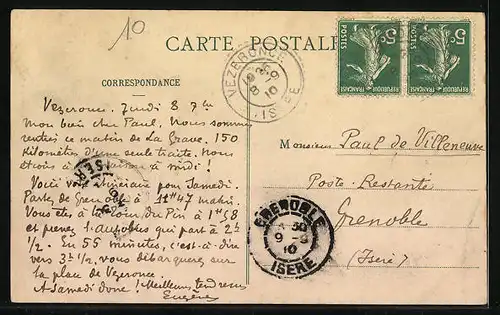 10
CARTE POSTALE
CORRESPONDANCE
Vezeronce. Jeudi 8 7bre
Mon bien cher Paul. Nous sommes
rentrés ce matin de La Grave. 150
Kilomètres d'une seule traite. Nous
étions à la maison à midi !
Voici votre itinéraire pour Samedi.
Partez de Grenoble à 11h47 matin.
Vous êtes à la Tour du Pin à 1h58
et prenez l'autobus qui part à 2h
1/2. En 55 minutes, c'est-à-dire
vers 3h 1/2, vous débarquez sur
la place de Vezeronce.
A Samedi donc ! Meilleures tendresses
Eugène
VEZERONCE
8 - 9
10
ISERE
5c 5c
POSTES POSTES
REPUBLIQUE FRANÇAISE REPUBLIQUE FRANÇAISE
Monsieur Paul de Villeneuve
Poste-Restante
Grenoble
(Isère)
GRENOBLE
9 - 9
10
ISERE